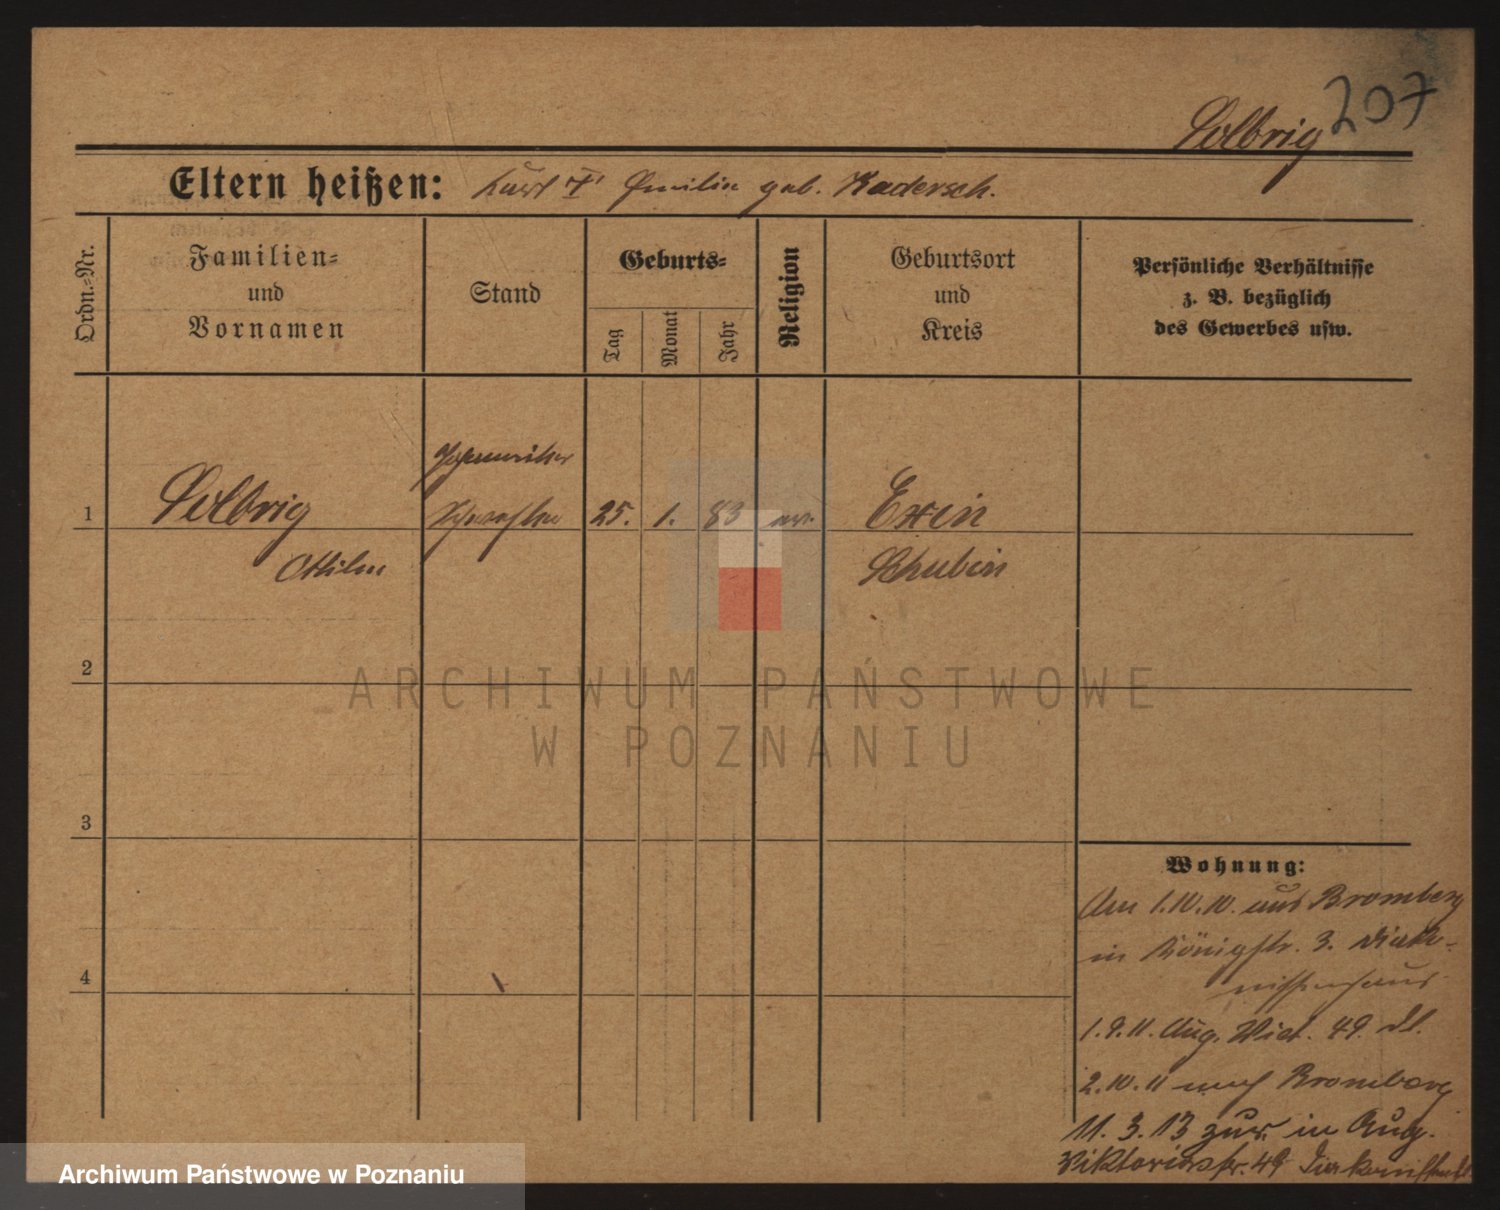 207
Selbrig
Eltern heißen: Kurt Emilie geb. Kadersch.
Ordn.-Nr.
Familien-
und
Vornamen
Stand
Geburts-
Tag
Monat
Jahr
Religion
Geburtsort
und
Kreis
Persönliche Verhältnisse
z. B. bezüglich
des Gewerbes usw.
1
Selbrig
Ottilie
Johanniter
Schwester
25. 1. 83 ev.
Exin
Schubin
2
3
4
Wohnung:
Am 1.10.10. aus Bromberg
in Königstr. 3. Diako-
nissenhaus
1.9.11. Aug. Vict. 49.
2.10.11 nach Bromberg
11.3.13 zur. in Aug.
Viktoriastr. 49
ARCHIWUM PAŃSTWOWE
W POZNANIU
Archiwum Państwowe w Poznaniu